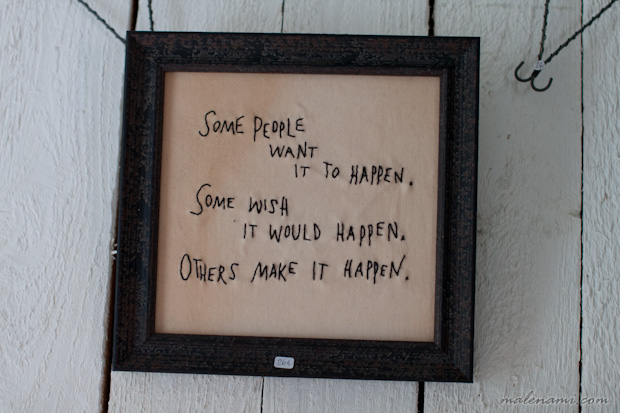 SOME PEOPLE
WANT
IT TO HAPPEN.
SOME WISH
IT WOULD HAPPEN.
OTHERS MAKE IT HAPPEN.
malenami.com